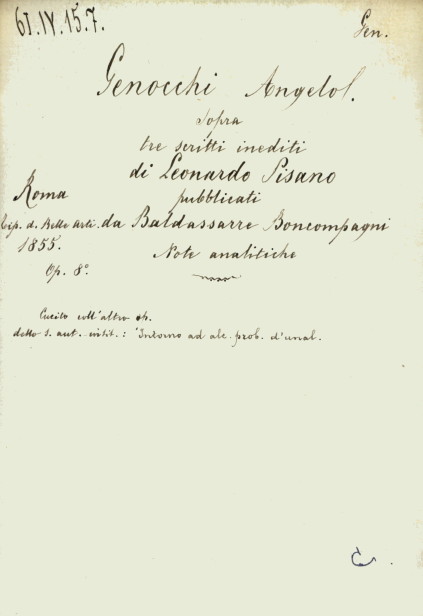 61.IV.15.7.
Gen.
Genocchi Angelo.
Sopra
tre scritti inediti
di Leonardo Pisano
pubblicati
da Baldassarre Boncompagni
Note analitiche
Roma
Tip. d. Belle Arti.
1855.
Op. 8º.
Cucito coll'altro
dello s. aut. intit.: Intorno ad alc. prob. d'anal.